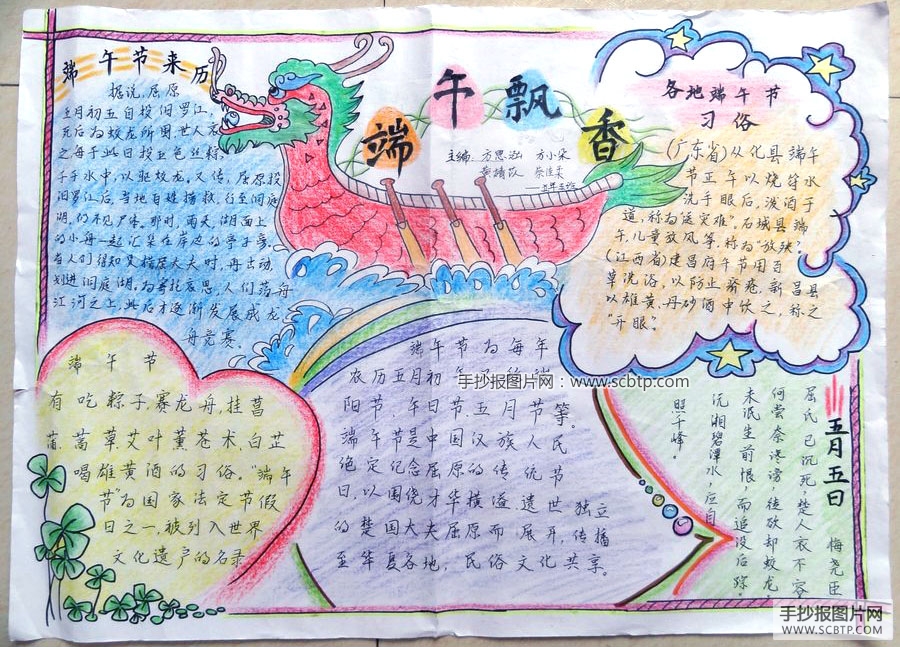 端午节来历
据说,屈原
五月初五自投汨罗江,
死后为蛟龙所困,世人哀
之每于此日投五色丝粽
子于水中,以驱蛟龙。又传,屈原投
汨罗江后,当地百姓捞救,行至洞庭
湖,们不见尸体。那时,雨天,湖面上
的小舟一起汇集在岸边的亭子旁,
当人们得知是打捞大夫时,再出动,
划进洞庭湖,为寄托哀思,人们荡舟
江河之上,此后才逐渐发展成龙
舟竞赛。
端午飘香
主编:方思涵 方小朵
各地端午节
习俗
(广东省)从化县端午
节正午以烧符水
洗手眼后,泼洒于
道,称为"送灾难"。石城县端
午,儿童放风筝,称为"放殃"
(江西省)建昌府午节用百
草洗浴,以防止疥疮。新昌县
以雄黄、丹砂酒中饮之,称之
"开眼"。
端午节
有吃粽子,赛龙舟,挂菖
蒲、蒿草、艾叶薰苍术、白芷
喝雄黄酒的习俗。"端午
节"为国家法定节假
日之一,被列入世界
文化遗产的名录
端午节为每年
农历五月初
阳节、午日节、五月节等。
端午节是中国汉族人民
绝定纪念屈原的传统节
日,以围绕才华横溢、遗世独立
的楚国大夫屈原而展开,传播
至华夏各地,民俗文化共享。
手抄报图片网:www.scbtp.com
五月五日
梅尧臣
屈氏已沉死,楚人哀不容
何尝奈谗谤,徒欲却蛟龙
未泯生前恨,而追没后踪。
沅湘碧潭水,应自
照千峰。
手抄报图片网
WWW.SCBTP.COM